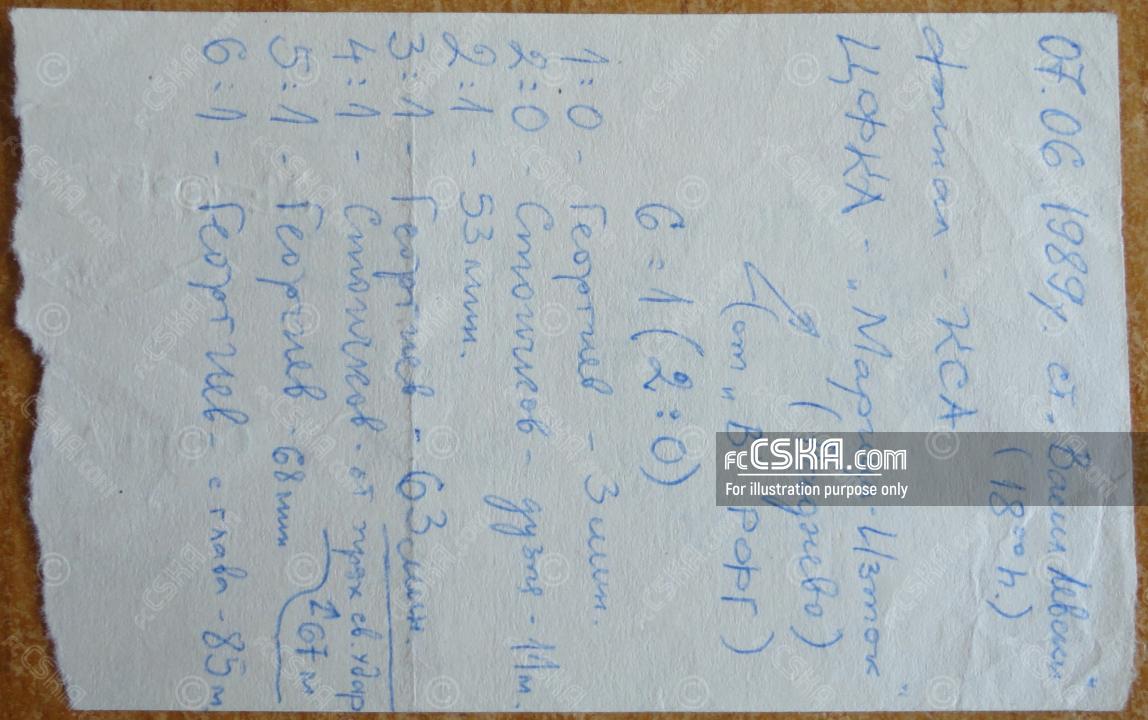 07.06 1989г. ст. "Васил Левски"
(18⁰⁰ h.)
финал - КСА
ЦФКА - "Марица-Изток"
(Раднево)
(от "В" РОФГ)
6:1 (2:0)
1:0 - Георгиев - 3 мин.
2:0 - Стоичков - дузпа - 11м.
2:1 - 53 мин.
3:1 - Георгиев - 63 мин.
4:1 - Стоичков - от пряк св. удар
67 м
5:1 - Георгиев - 68 мин
6:1 - Георгиев - с глава - 85м
fcCSKA.com
For illustration purpose only